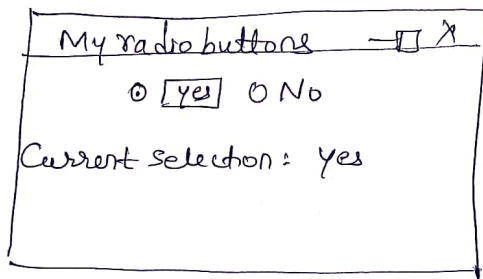 My radio buttons X
yes No
Current selection: yes